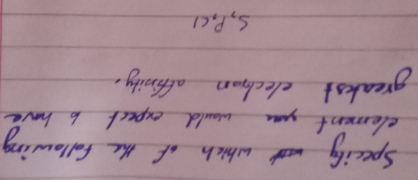 Specify which of the following
element you would expect to have
greatest electron affinity.
S, P, Cl